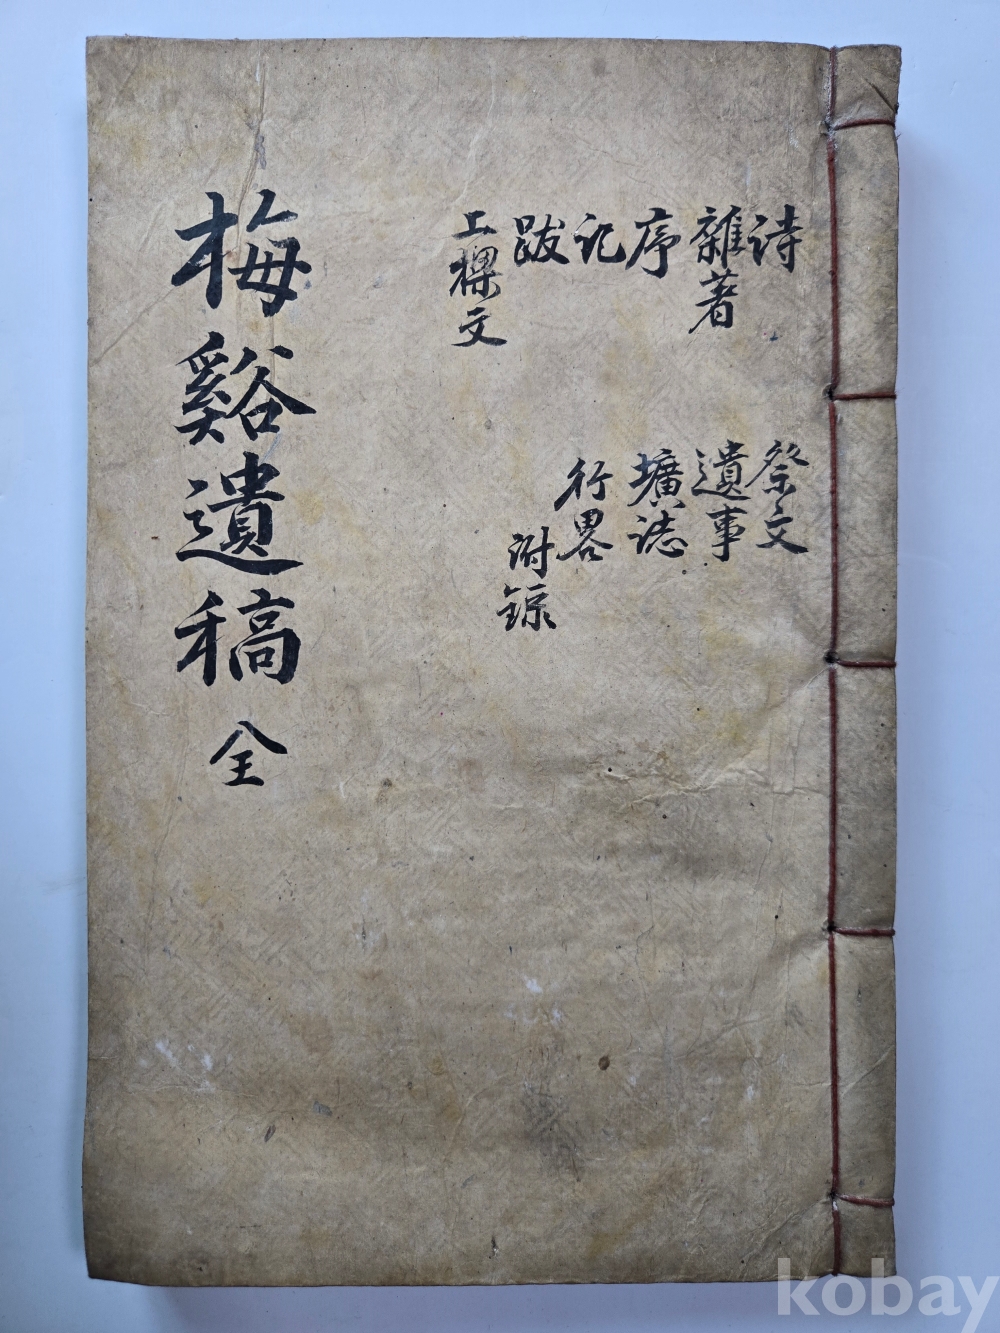 詩
雜著
序
記
跋
上樑文
祭文
遺事
壙誌
行畧
附録
梅谿遺稿 全
kobay